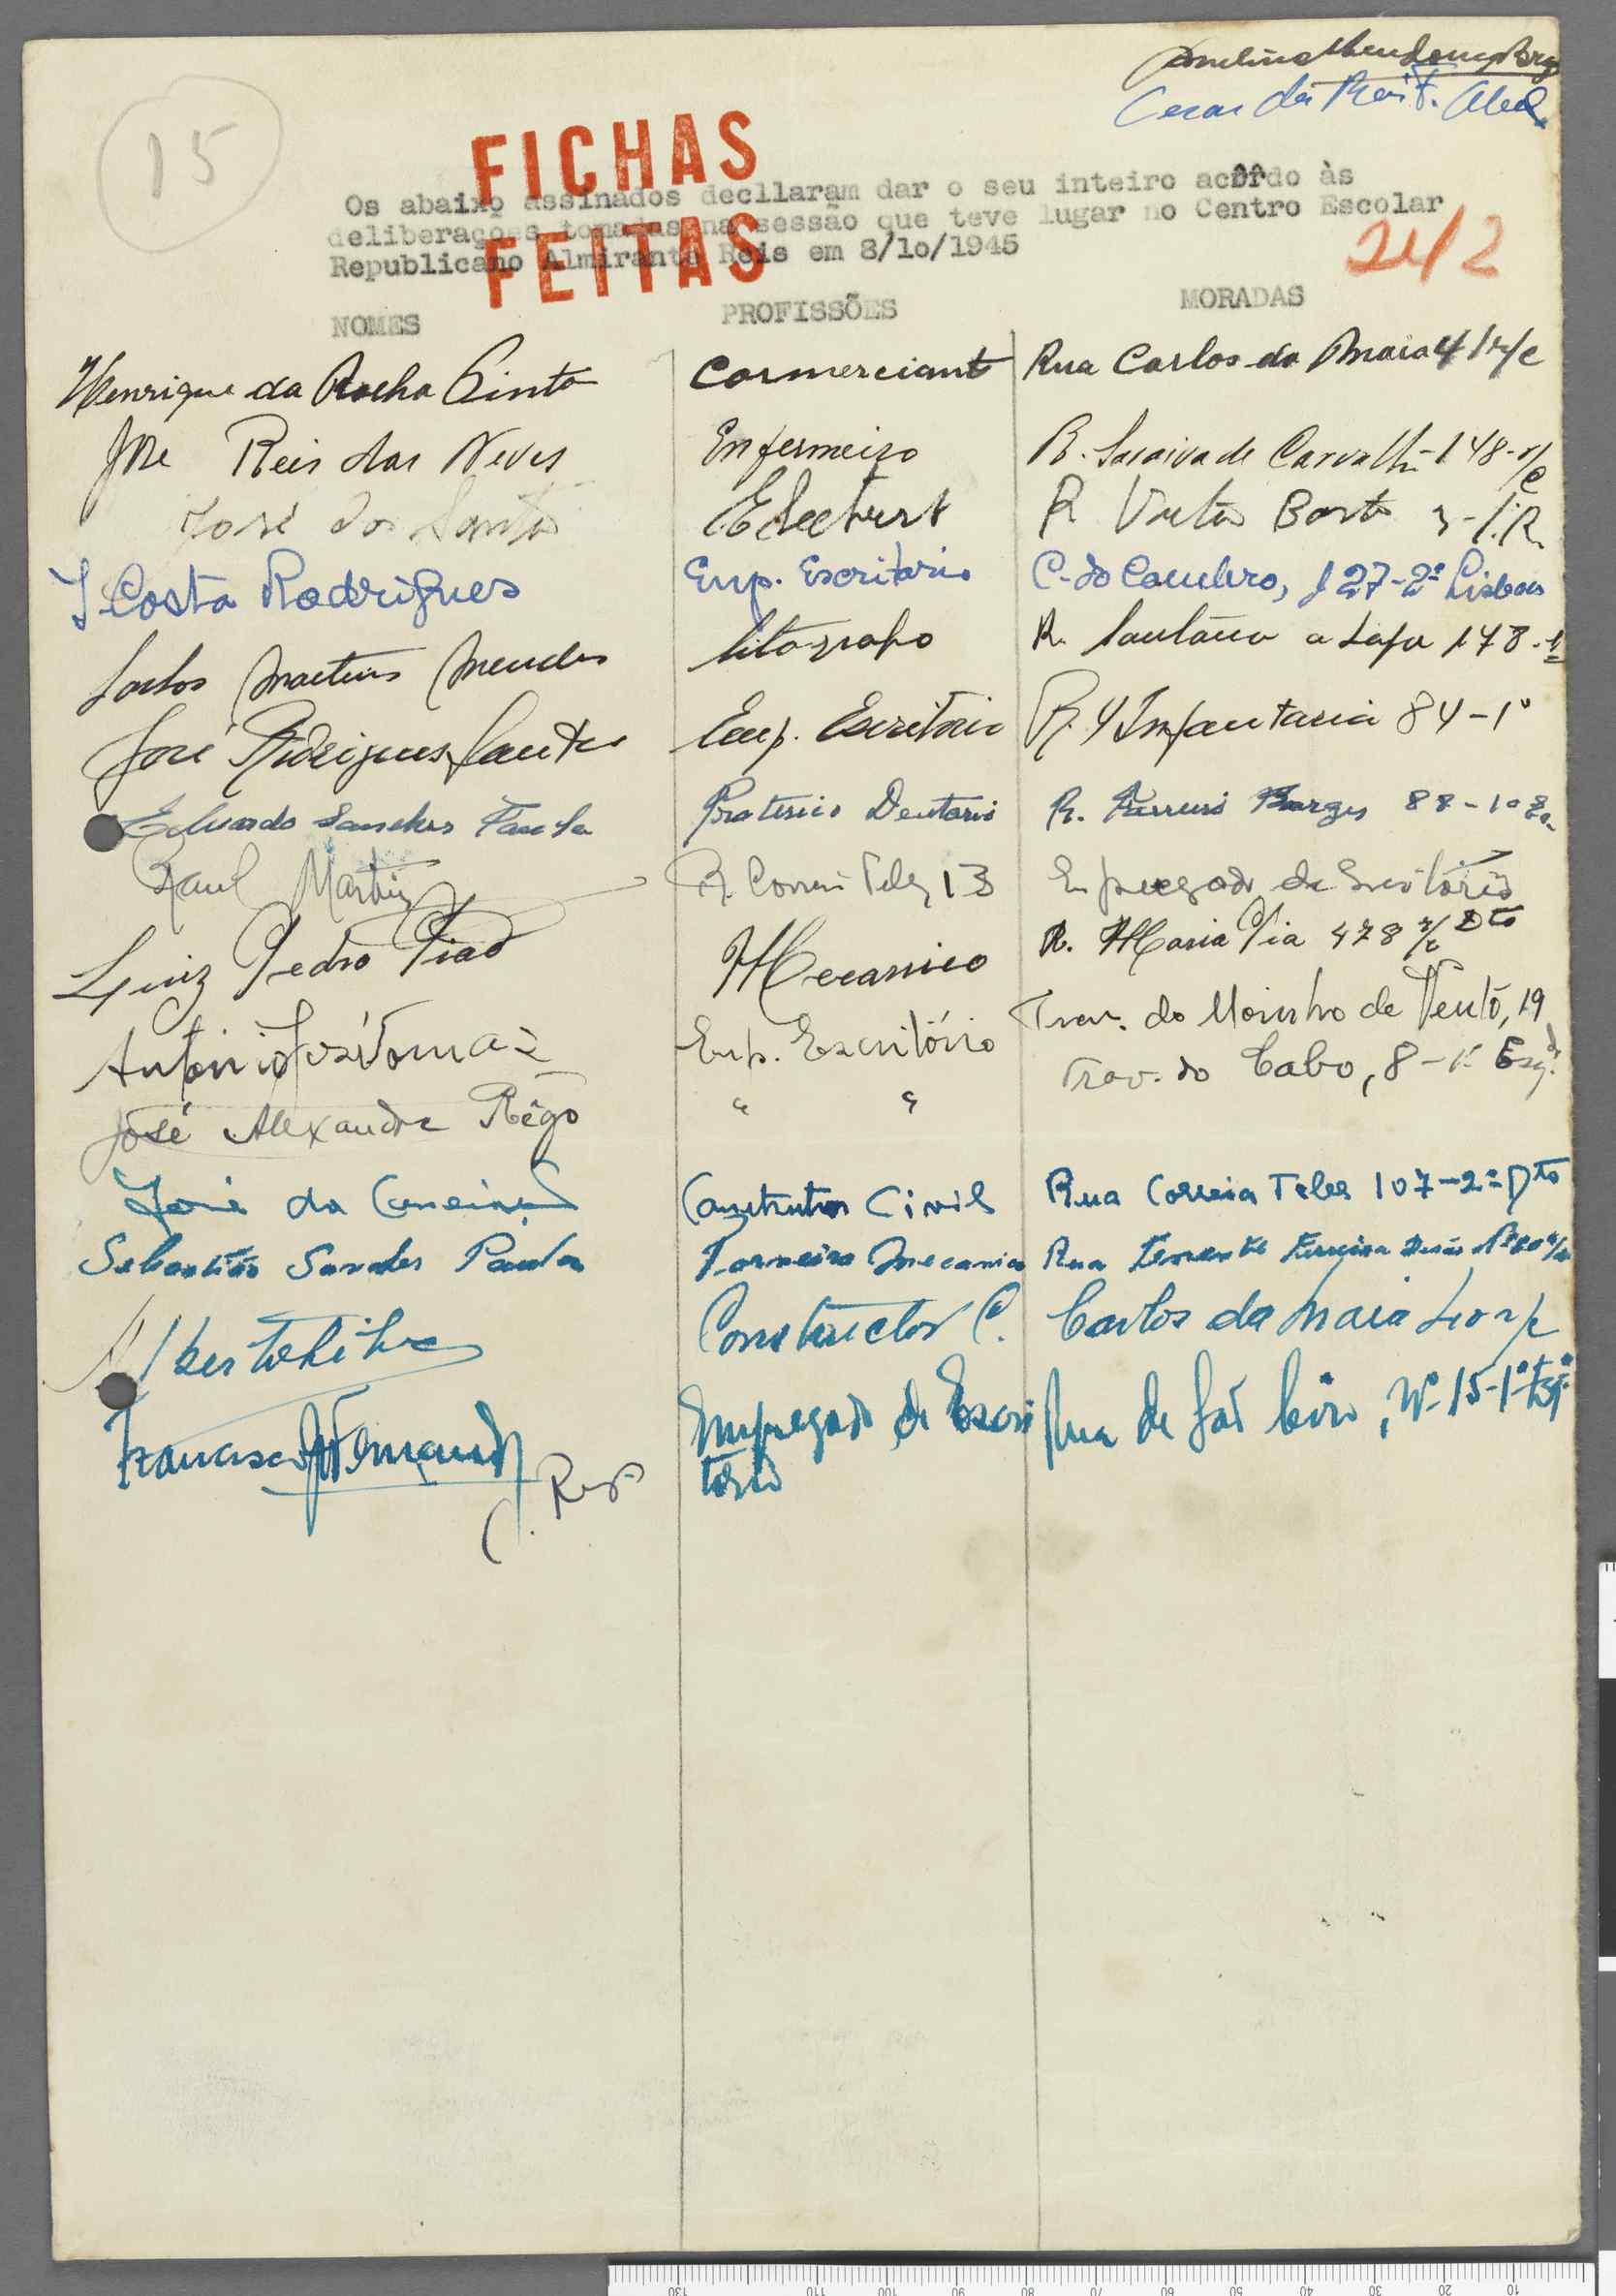 15
Cesar da
FICHAS
FEITAS
Os abaixo assinados decllaram dar o seu inteiro acôrdo às
deliberaçoes tomadas na sessão que teve lugar no Centro Escolar
Republicano Almirante Reis em 8/1o/1945
2412
NOMES PROFISSÕES MORADAS
Henrique da Rocha Pinto Cormerciant Rua Carlos da Maia 41 r/c
José Reis das Neves Enfermeiro R. Saraiva de Carvalho 148-r/c
José dos Santos Electrist R Vieto Basto 3-1.
J Costa Rodrigues Emp. Escritório C. do Combro, 127-2º Lisboa
Carlos Martins Mendes litografo R. Santana a Lapa 178-1º
José Rodrigues Santos Emp. Escritorio R. 4 Infantaria 84-1º
Eduardo Sanches Paula Protesico Dentario R. Ferreira Borges 88-1º
Raul Martins R. Correia Teles 13 Empregado de Escritório
Luiz Pedro Piad Mecanico R. Maria Pia 478 r/c Dto
António José Tomaz Emp. Escritório Trav. do Moinho de Vento, 19
José Alexandre Rêgo " " Trav. do Cabo, 8-1º Esqdo
José da Conceição Construtor Civil Rua Correia Teles 107-2º Dto
Sebastião Sanches Paula Torneiro Mecanico Rua Tenente Ferreira Durão Nº 60
Alberto Silva Constructor C. Carlos da Maia 40 r/c
Francisco Fernandes Empregado de Escri Rua de São Ciro, Nº 15-1º Esqº
tório
C. Rego